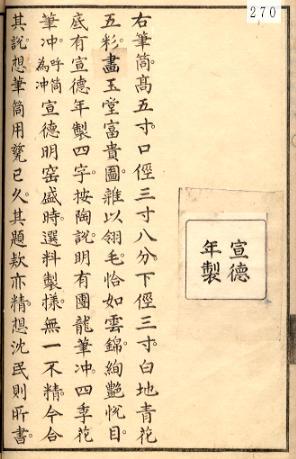 270
右筆筒。髙五寸。口俓三寸八分。下俓三寸。白地青花
五彩。畫玉堂富貴圖。雜以翎毛。恰如雲錦絢艷悅目。
底有宣德年製四字。按陶說。明有團龍筆冲。四季花
筆冲。呼筒為冲宣德明窑盛時。選料製樣。無一不精。今合
其說。想筆筒用甆已久。其題欵亦精。想沈民則所書。
宣德
年製